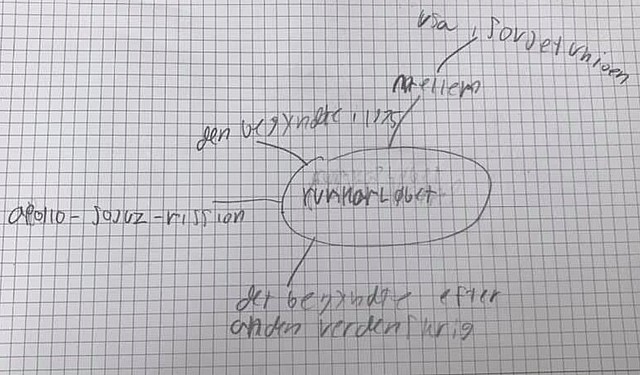 usa, sovjetunioen
mellem
den begyndte, 1975
rumkapløbet
apollo-sojuz-mission
det begyndte efter
anden verdenskrig